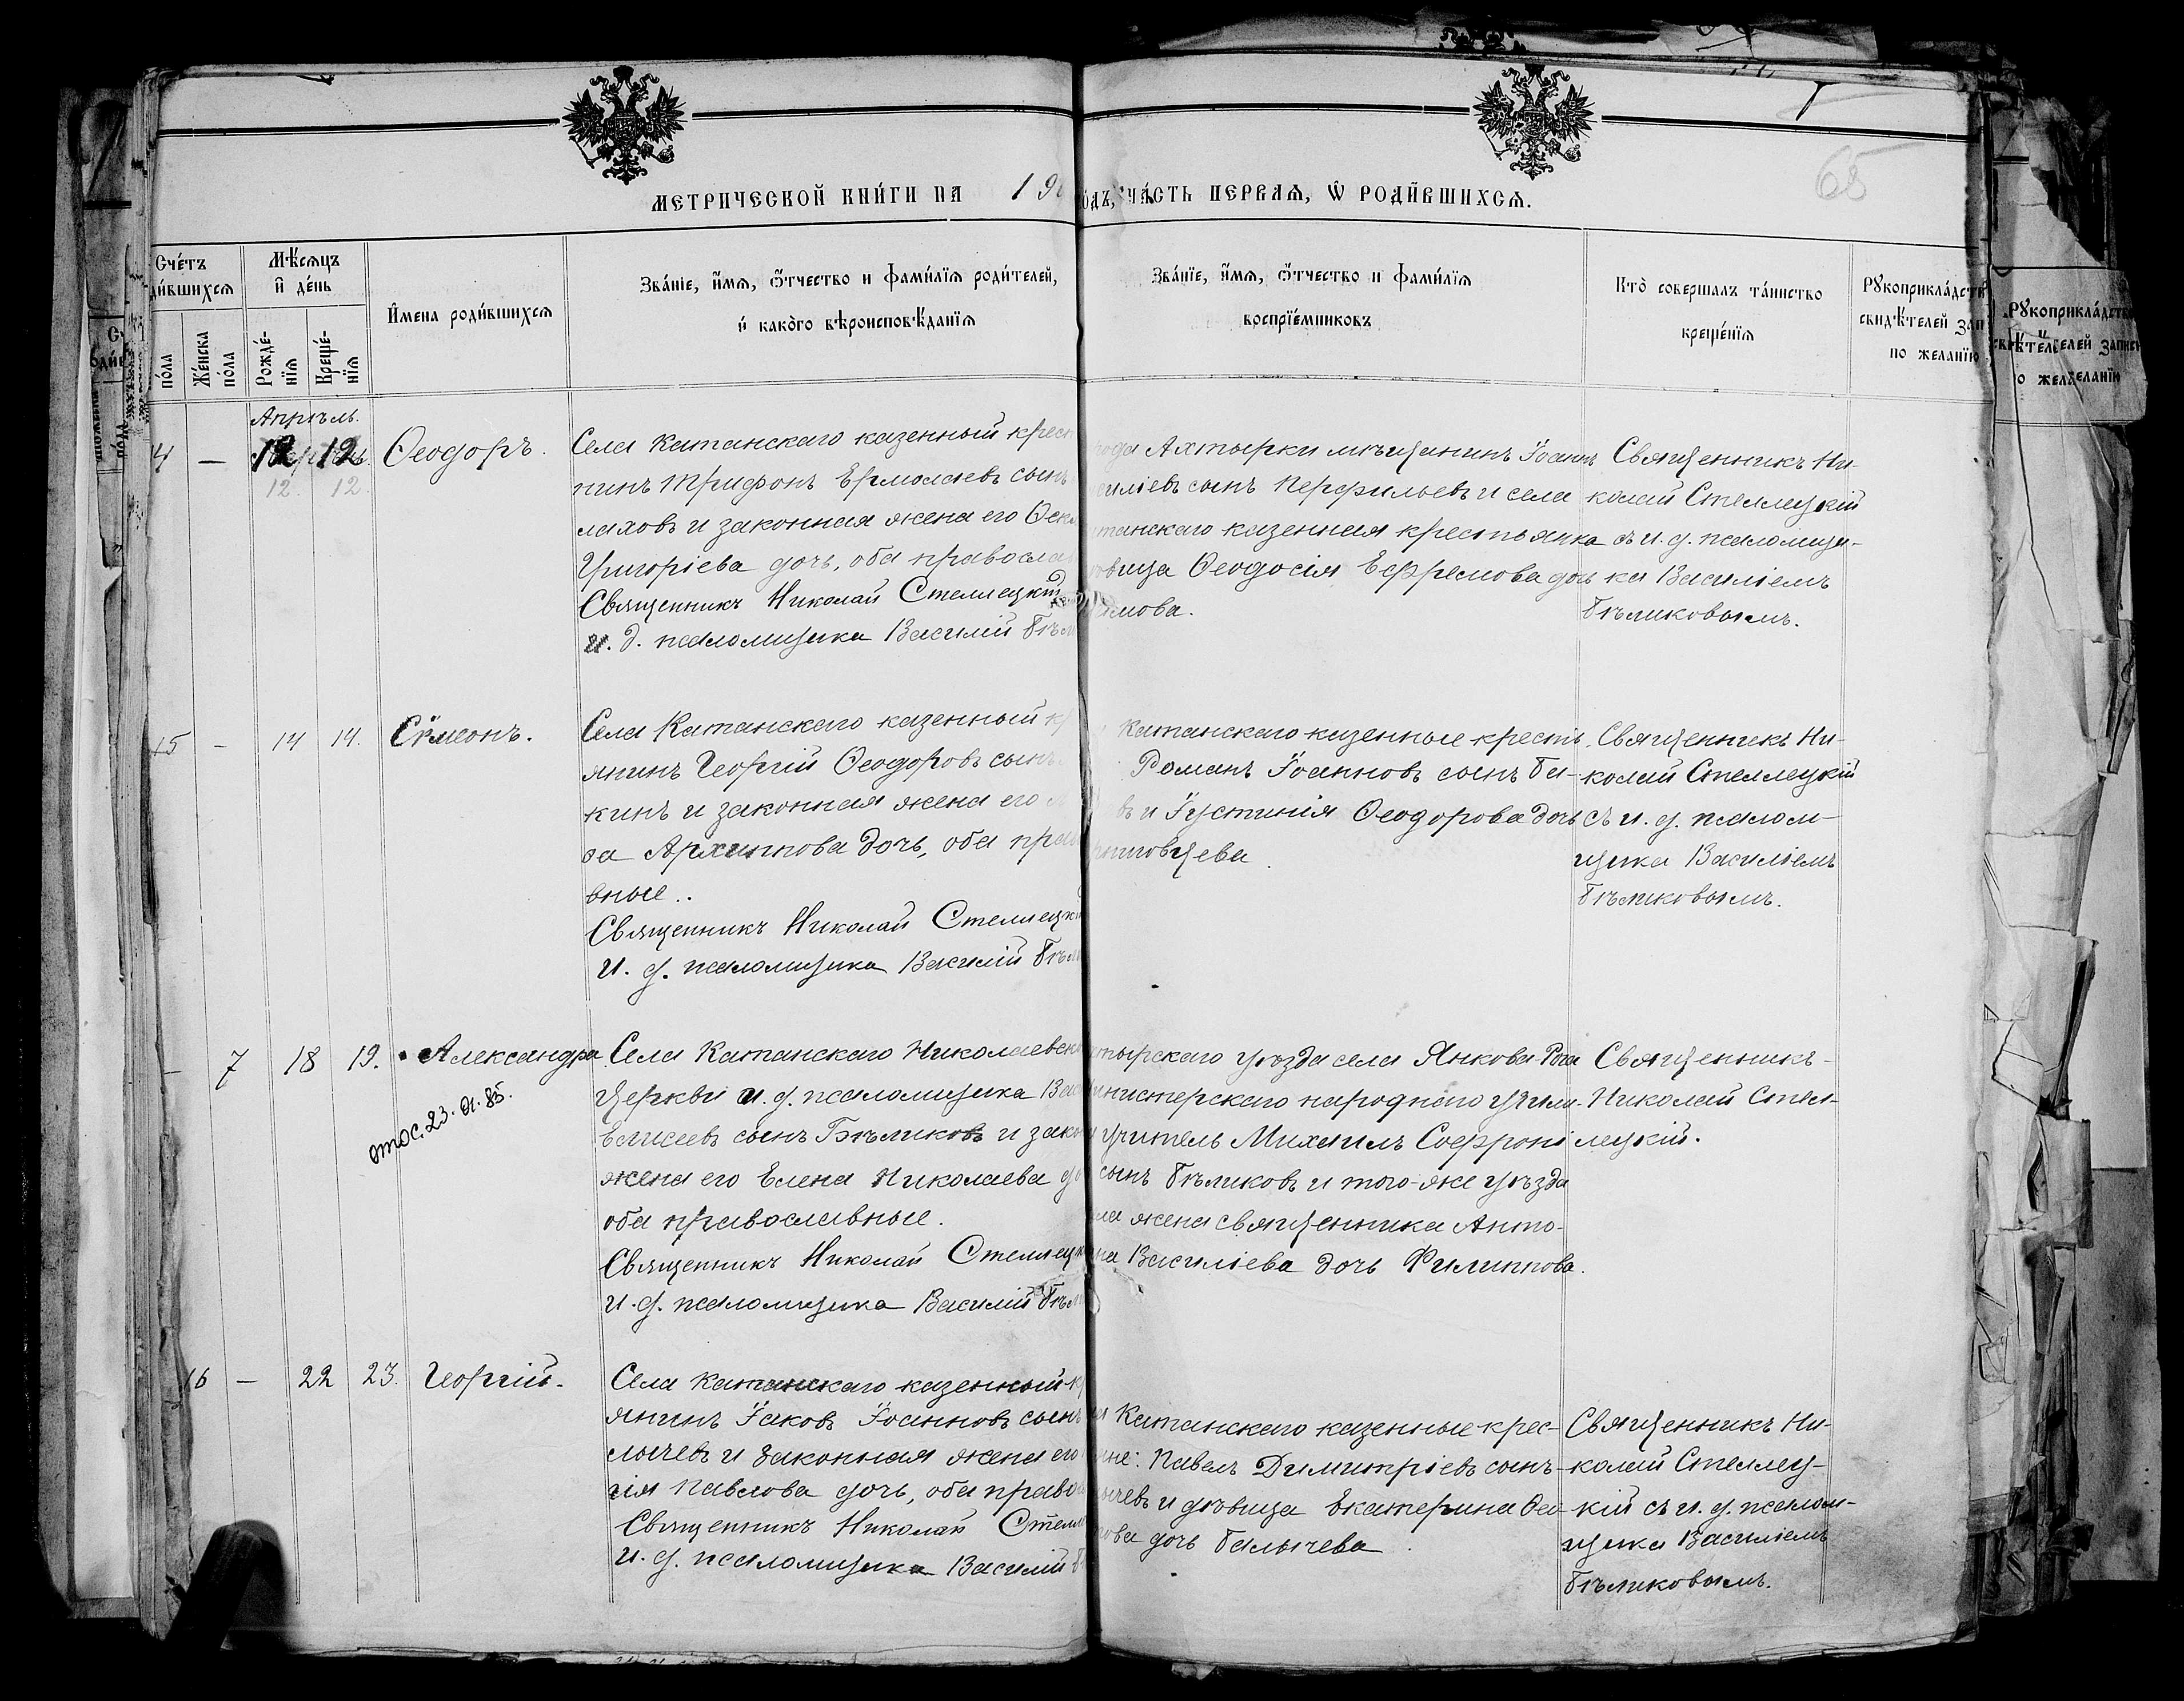 65
МЕТРИЧЕСКОЙ КНИ́ГИ НА 19 ОДЪ, ЧА́СТЬ ПЕРВАѦ, Ѡ РОДИ́ВШИХСѦ.
Сче́тъ
ди́вшихсѧ
Мѣ́сѧцъ
и де́нь
по́ла
Же́нска
по́ла
Рожде́-
нїѧ
Креще́-
нїѧ
И҆мена роди́вшихсѧ
Зва́нїе, и҆́мѧ, ѻ҆́тчество и фами́лїѧ роди́телей,
и҆ како́го вѣроисповѣ́данїѧ
Зва́нїе, и҆́мѧ, ѻ҆́тчество и фами́лїѧ
воспрїе́мниковъ
Кто̀ совершалъ та́инство
креще́нїѧ
Рꙋкоприкла́дств
свидѣ́телей зап
по желанїю
Апрѣль.
4 — 12 12 Ѳеодоръ.
12. 12.
Села Катанскаго казенный крест
нинъ Трифонъ Ермолаевъ сынъ
лаховъ и законная жена его Ѳек
Григоріева дочь, оба правосла
Священникъ Николай Стеллецкій
и. д. псаломщика Василій Бѣл
рода Ахтырки мѣщанинъ Іоаннъ
силіевъ сынъ Перфильевъ и села
танскаго казенная крестьянка
овица Ѳеодосія Ефремова дочь
мова.
Священникъ Ни-
колай Стеллецкій
съ и. д. псаломщи-
ка Василіемъ
Бѣликовымъ.
15 — 14 14. Сѵмеонъ.
Села Катанскаго казенный к
янинъ Георгій Ѳеодоровъ сынъ
кинъ и законная жена его
за Архиппова дочь, оба прав
вные..
Священникъ Николай Стеллецкі
И. д. псаломщика Василій Бѣл
Катанскаго казенные кресть
Романъ Іоанновъ сынъ Ба-
въ и Іустинія Ѳеодорова дочь
овцева.
Священникъ Ни-
колай Стеллецкій
съ и. д. псалом-
щика Василіемъ
Бѣликовымъ.
— 7 18 19. Александра
отос. 23. 01. 85.
Села Катанскаго Николаевск
церкви и. д. псаломщика Вас
Елисеевъ сынъ Бѣликовъ и зако
жена его Елена Николаева до
оба православные.
Священникъ Николай Стеллецк
и. д. псаломщика Василій Бѣл
тырскаго уѣзда села Янкова-Рога
инистерскаго народнаго учили-
учитель Михаилъ Софроні
сынъ Бѣликовъ и того-же уѣзда
ла жена священника Анто-
на Василіева дочь Филиппова.
Священникъ
Николай Стел-
лецкій.
16 — 22 23. Георгій.
Села Катанскаго казенный к
янинъ Іаковъ Іоанновъ сынъ
лычевъ и законная жена его
сія Павлова дочь, оба правос
Священникъ Николай Стелл
И. д. псаломщика Василій Б
Катанскаго казенные крес-
не: Павелъ Димитріевъ сынъ
ычевъ и дѣвица Екатерина Ѳео-
ова дочь Балычева.
Священникъ Ни-
колай Стеллец-
кій съ и. д. псалом-
щика Василіемъ
Бѣликовымъ.